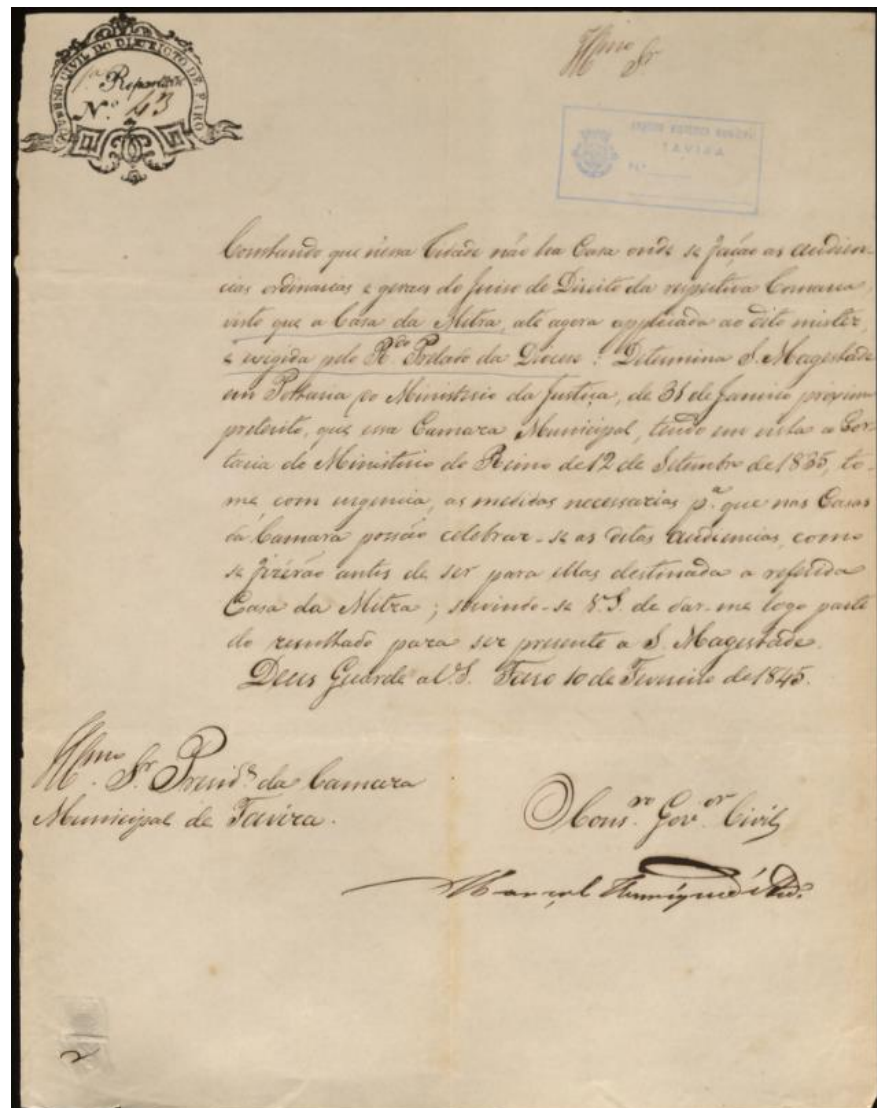 GOVERNO CIVIL DO DISTRICTO DE FARO
1ª Repartição
Nº 43
Illmo Sr
Constando que nessa Cidade não ha Casa onde se fação as audien-
cias ordinarias e geraes do Juiso de Direito da respectiva Comarca,
visto que a Casa da Mitra, até agora applicada ao dito mister,
é exigida pelo Rdo Prelado da Diocese: Determina S. Magestade
em Portaria do Ministerio da Justiça, de 31 de Janeiro proximo
preterito, que essa Camara Municipal, tendo em vista a Por-
taria do Ministerio do Reino de 12 de Setembro de 1835, to-
me com urgencia, as medidas necessarias pª que nas Casas
da Camara possão celebrar-se as ditas audiencias, como
se fizerão antes de ser para ellas destinada a referida
Casa da Mitra; servindo-se V.S. de dar-me logo parte
do resultado para ser presente a S. Magestade.
Deus Guarde a V.S. Faro 10 de Fevereiro de 1845.
Illmo Sr. Presidte da Camara
Municipal de Tavira.
O Consro Govor Civil